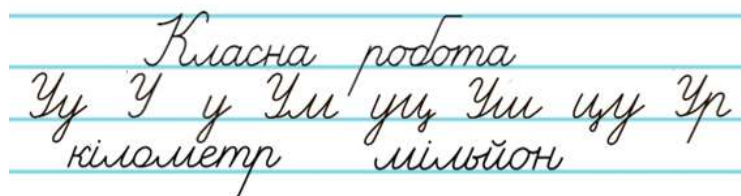 Класна робота
Уу У у Ум уц Уш цу Ур
кілометр мільйон